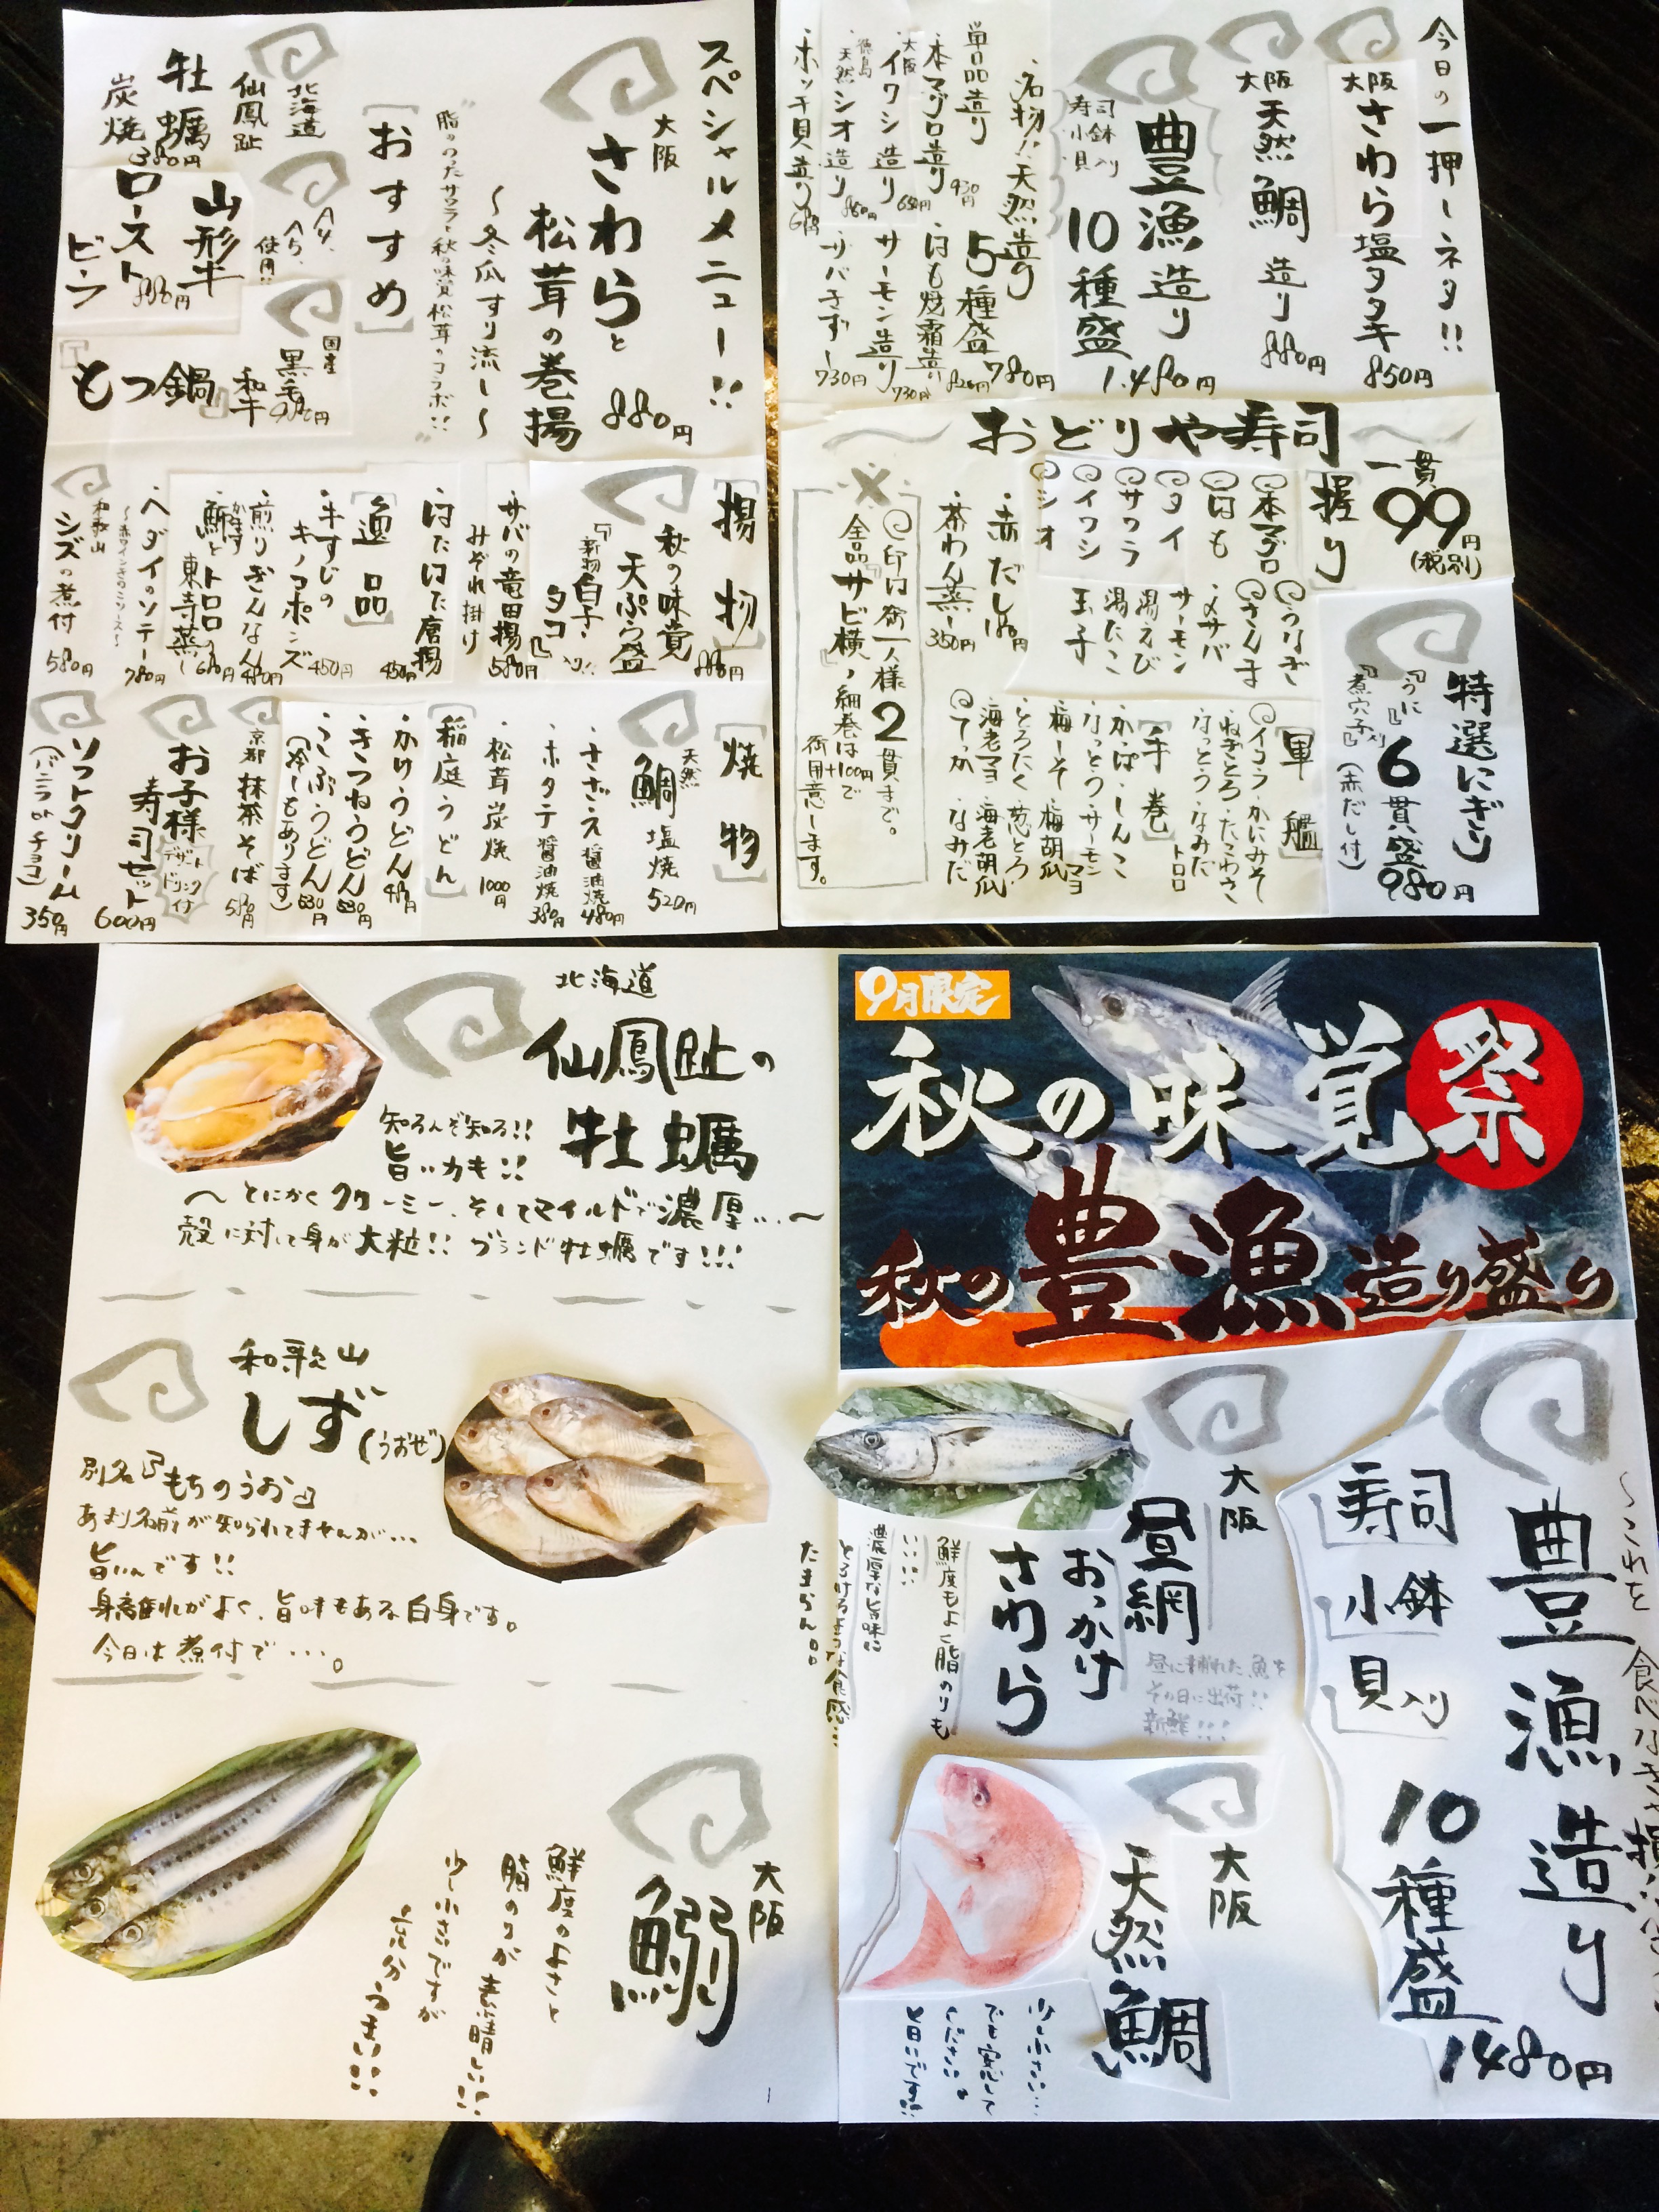 今日の一押しネタ!!
大阪
さわら塩タタキ
850円
大阪
天然鯛造り
880円
豊漁造り
寿司
小鉢
貝入り
10種盛
1.480円
名物!!天然造り
5種盛
780円
単品造り
本マグロ造り 930円
大阪
イワシ造り 680円
徳島
天然シオ造り
ホッキ貝造り
はも焼霜造
サーモン造り 730円
730円
おどりや寿司
一貫
99円
(税別)
[握り]
本マグロ
はも
タイ
サワラ
イワシ
シオ
うなぎ
さんま
・〆サバ
サーモン
湯えび
湯たこ
玉子
・赤だし 180円
茶わん蒸し 350円
特選にぎり
『うに』
『煮穴子』入り
6貫盛
980円
(赤だし付)
[軍艦]
イクラ・かにみそ
ねぎとろ・たこわさ
なっとう・なみだ
トロロ
[手巻]
かっぱ・しんこ
なっとう・サーモンマヨ
梅しそ 梅胡瓜
とろたく 葱とろ
海老マヨ 海老胡瓜
てっか なみだ
印は御一人様2貫まで。
全品『サビ横』、細巻は+100円で
御用意します。
スペシャルメニュー!!
大阪
さわらと
松茸の巻揚
880円
〜冬瓜すり流し〜
"脂ののったサワラと秋の味覚松茸のコラボ!!"
[おすすめ]
北海道
仙鳳趾
牡蠣
炭焼
380円
山形牛
ロースト
ビーフ
880円
使用!!
国産
黒毛
和牛
『もつ鍋』
980円
[揚物]
秋の味覚
天ぷら盛
880円
『新物白子・タコ』入り!!
サバの竜田揚
みぞれ掛け
580円
はたはた唐揚
450円
[逸品]
・牛すじの
キノコポンズ
450円
煎りぎんなん
480円
かます
・鰤とトロロの
東寺蒸し
680円
・ヘダイのソテー
780円
和歌山
シズの煮付
580円
[焼物]
天然
鯛塩焼
520円
・さざえ醤油焼
480円
・ホタテ醤油焼
380円
・松茸炭焼
1000円
[稲庭うどん]
・かけうどん
・きつねうどん
・こぶうどん
(冷しもあります)
京都
抹茶そば
580円
お子様
寿司セット
デザート
ドリンク付
600円
ソフトクリーム
(バニラorチョコ)
350円
9月限定
秋の味覚祭
秋の豊漁造り盛り
北海道
仙鳳趾の
牡蠣
知る人ぞ知る!!
旨い力も!!
〜とにかくクリーミー、そしてマイルドで濃厚…〜
殻に対して身が大粒!!ブランド牡蠣です!!!
和歌山
しず
(うおぜ)
別名『もちのうお』
あまり名前が知られてませんが…
旨いんです!!
身離れがよく、旨味もある白身です。
今日は煮付で…。
大阪
鰯
鮮度のよさと
脂のりが素晴しい!!
少し小さいですが
充分うまい!!!
大阪
昼網
おっかけ
さわら
昼に捕れた魚を
その日に出荷!!
新鮮!!!
鮮度もよし脂のりも
いい!!!
濃厚な旨味に
とろけるような食感…
たまらん。。
大阪
天然鯛
豊漁造り
寿司
小鉢
貝入り
10種盛
1480円